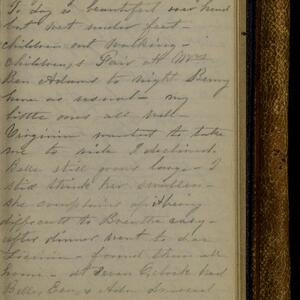 To Day is beautiful over head
but wet under feet -
Children out walking -
Children's Fair at Mrs
Ben Adams to night Benny
here as usual - my
little ones all well -
Virginia wanted to take
me to ride I declined.
Belle still grows large - I
still think her swollen -
she complains of it being
difficult to Breathe easy -
after dinner went to see
found them all
home - at Seven O clock had
Belle, Eva, & Ada